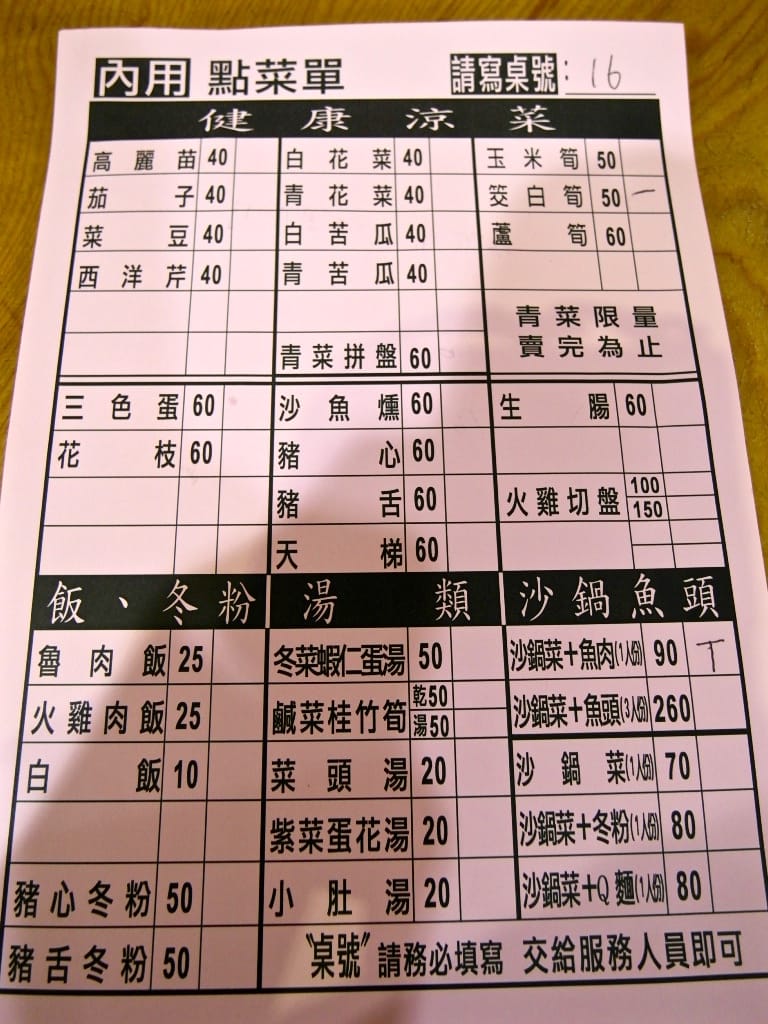 內用 點菜單 請寫桌號: 16
健康涼菜
高麗苗 40 白花菜 40 玉米筍 50
茄子 40 青花菜 40 筊白筍 50 一
菜豆 40 白苦瓜 40 蘆筍 60
西洋芹 40 青苦瓜 40
青菜限量
賣完為止
青菜拼盤 60
三色蛋 60 沙魚燻 60 生腸 60
花枝 60 豬心 60
豬舌 60 火雞切盤 100
150
天梯 60
飯、冬粉 湯類 沙鍋魚頭
魯肉飯 25 冬菜蝦仁蛋湯 50 沙鍋菜+魚肉(1人份) 90 丅
火雞肉飯 25 鹹菜桂竹筍 乾50 沙鍋菜+魚頭(3人份) 260
湯50
白飯 10 菜頭湯 20 沙鍋菜(1人份) 70
紫菜蛋花湯 20 沙鍋菜+冬粉(1人份) 80
豬心冬粉 50 小肚湯 20 沙鍋菜+Q麵(1人份) 80
豬舌冬粉 50 "桌號"請務必填寫 交給服務人員即可